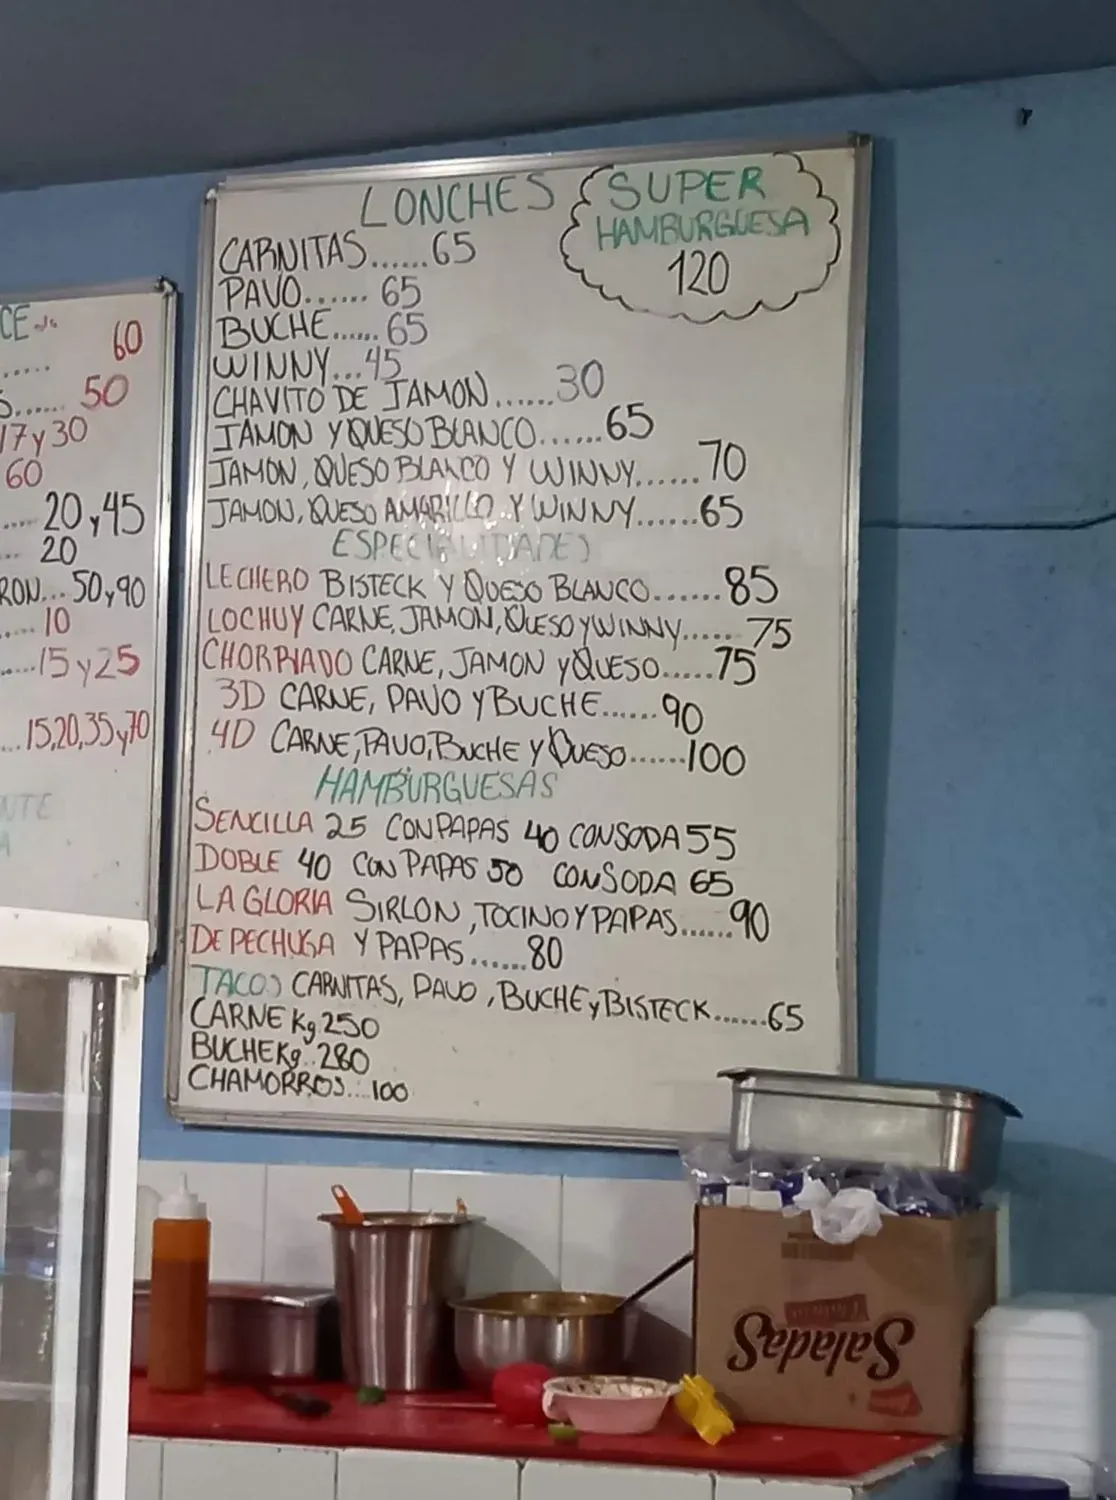 CE
..... 60
S...... 50
17 y 30
60
.... 20 y 45
... 20
RON... 50 y 90
.... 10
.....15 y 25
...15,20,35 y 70
NTE
A
LONCHES
SUPER
HAMBURGUESA
120
CARNITAS......65
PAVO...... 65
BUCHE...... 65
WINNY...45
CHAVITO DE JAMON......30
JAMON Y QUESO BLANCO......65
JAMON, QUESO BLANCO Y WINNY......70
JAMON, QUESO AMARILLO Y WINNY......65
ESPECIALIDADES
LECHERO BISTECK Y QUESO BLANCO......85
LOCHUY CARNE, JAMON, QUESO y WINNY...... 75
CHORRIADO CARNE, JAMON y QUESO.....75
3D CARNE, PAVO Y BUCHE......90
4D CARNE, PAVO, BUCHE Y QUESO......100
HAMBURGUESAS
SENCILLA 25 CON PAPAS 40 CON SODA 55
DOBLE 40 CON PAPAS 50 CON SODA 65
LA GLORIA SIRLON, TOCINO Y PAPAS......90
DE PECHUGA Y PAPAS......80
TACOS CARNITAS, PAVO, BUCHE y BISTECK......65
CARNE Kg.250
BUCHE Kg..280
CHAMORROS...100
Saladas